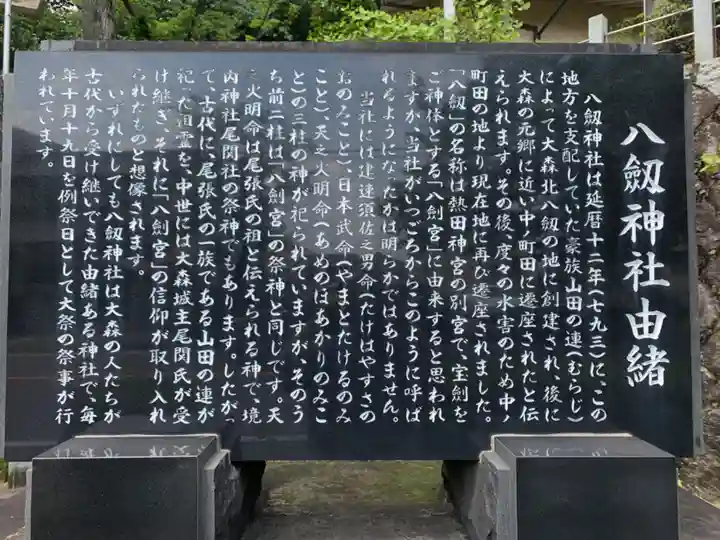 八劔神社由緒
八劔神社は延暦十二年(七九三)に、この
地方を支配していた豪族山田の連(むらじ)
によって大森北八劔の地に創建され、後に
大森の元郷に近い中ノ町田に遷座されたと伝
えられます。その後、度々の水害のため中ノ
町田の地より現在地に再び遷座されました。
「八劔」の名称は熱田神宮の別宮で、宝剣を
ご神体とする「八剣宮」に由来すると思われ
ますが、当社がいつごろからこのように呼ば
れるようになったかは明らかではありません。
当社には建速須佐之男命(たけはやすさの
おのみこと)、日本武命(やまとたけるのみ
こと)、天之火明命(あめのほあかりのみこ
と)の三柱の神が祀られていますが、そのう
ち前二柱は「八劍宮」の祭神と同じです。天
之火明命は尾張氏の祖と伝えられる神で、境
内神社尾関社の祭神でもあります。したがっ
て、古代に、尾張氏の一族である山田の連が
祀った祖霊を、中世には大森城主尾関氏が受
け継ぎ、それに「八劍宮」の信仰が取り入れ
られたものと想像されます。
いずれにしても八劔神社は大森の人たちが
古代から受け継いできた由緒ある神社で、毎
年十月十九日を例祭日として大祭の祭事が行
われています。